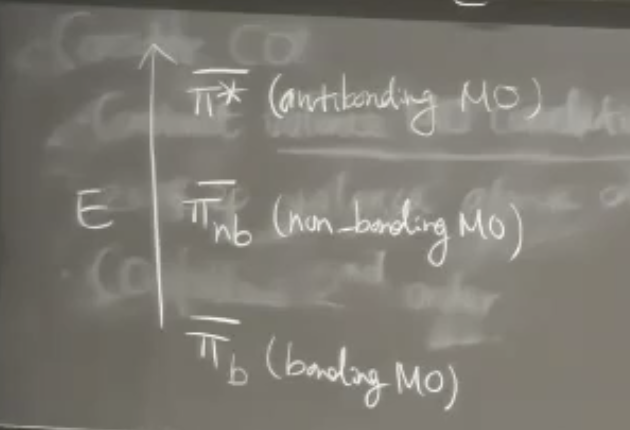 π* (antibonding MO)
E
π nb (non-bonding MO)
π b (bonding MO)